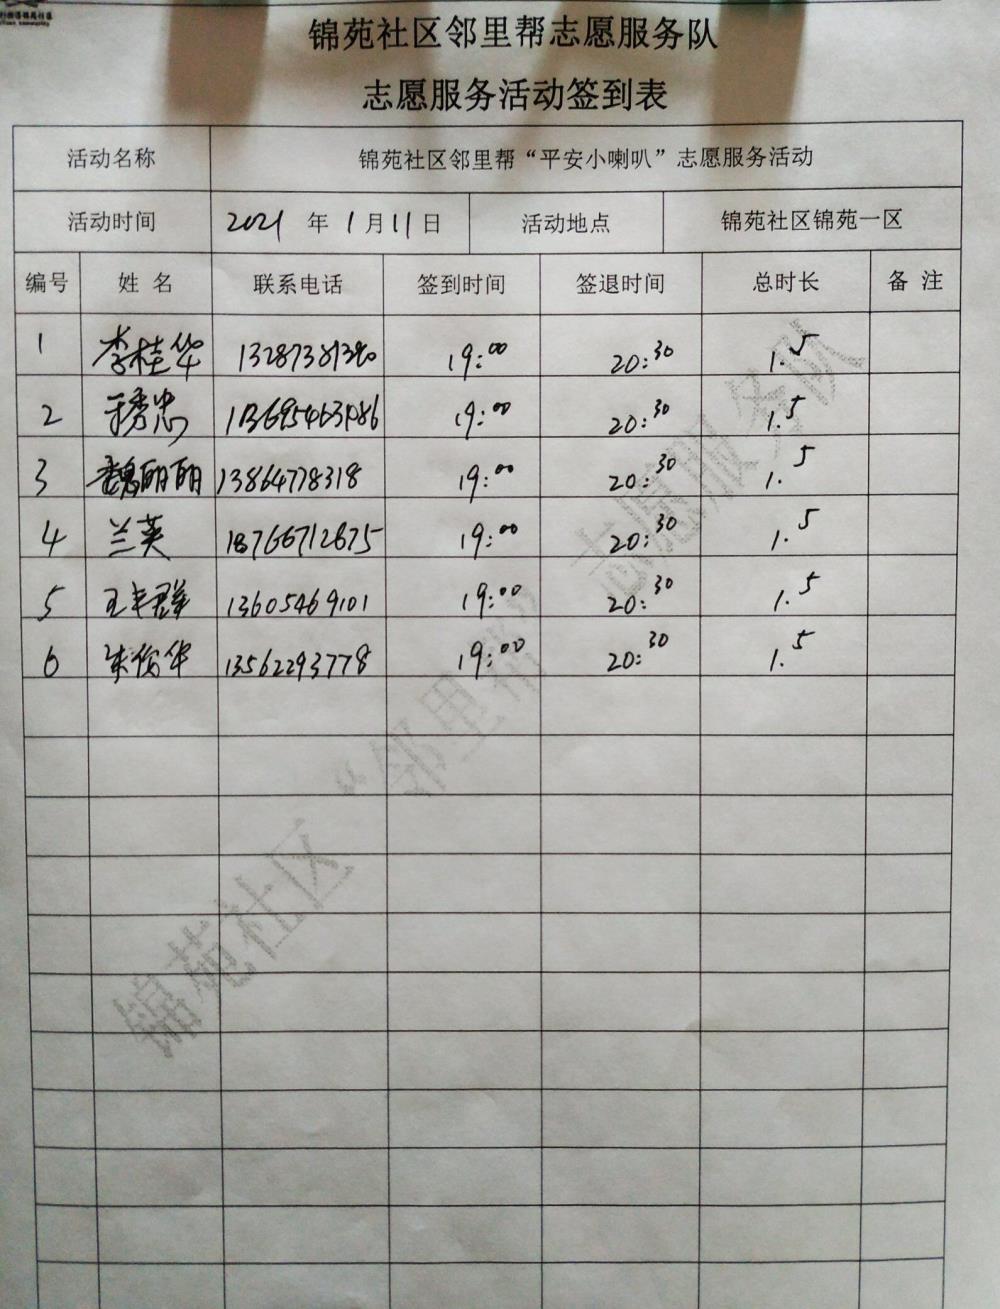 锦苑社区邻里帮志愿服务队
志愿服务活动签到表
活动名称 锦苑社区邻里帮“平安小喇叭”志愿服务活动
活动时间 2021 年 1 月 11 日 活动地点 锦苑社区锦苑一区
编号 姓名 联系电话 签到时间 签退时间 总时长 备注
1 李桂华 19:00 20:30 1.5
2 19:00 20:30 1.5
3 魏丽丽 13864778318 19:00 20:30 1.5
4 兰英 18766712675 19:00 20:30 1.5
5 13605469101 19:00 20:30 1.5
6 13562293778 19:00 20:30 1.5
锦苑社区“邻里帮”志愿服务队